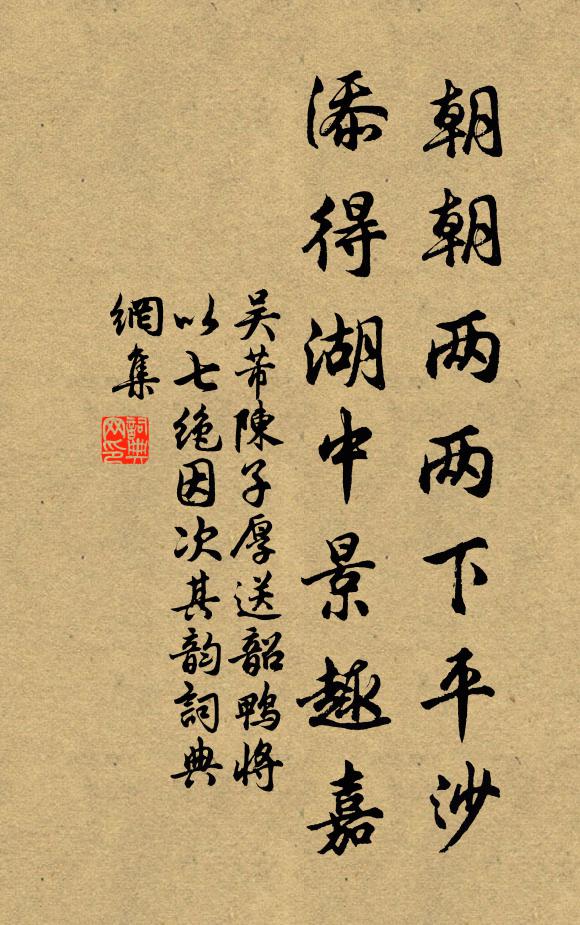 朝朝两两下平沙
添得湖中景趣嘉
吴芾陳子厚送韶鴨將
以七絶因次其韵詞典
網集
詞典
网印